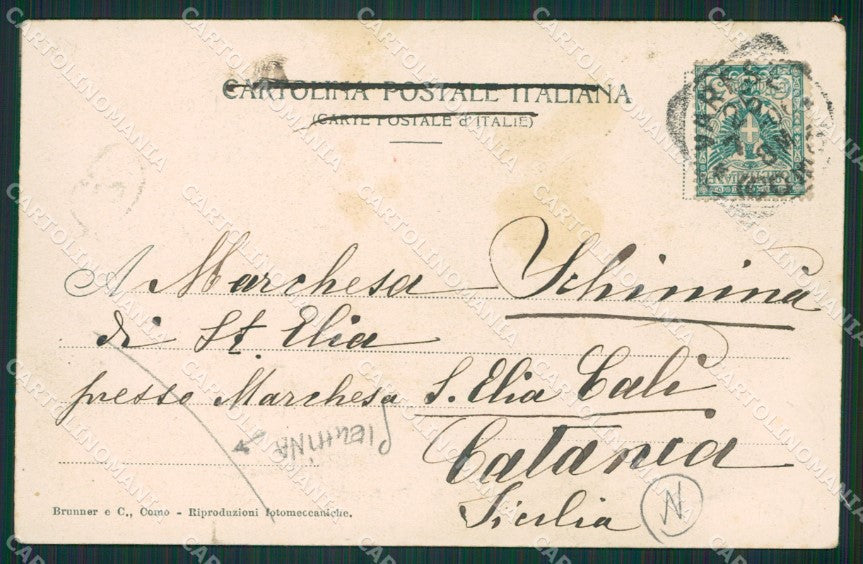 CARTOLINA POSTALE ITALIANA
(CARTE POSTALE d'ITALIE)
VARESE
A Marchesa Schininà
di St. Elia
presso Marchesa S. Elia Calì
Catania
Sicilia
N
PIEGHINA
Brunner e C., Como - Riproduzioni fotomeccaniche.
CARTOLINOMANIA